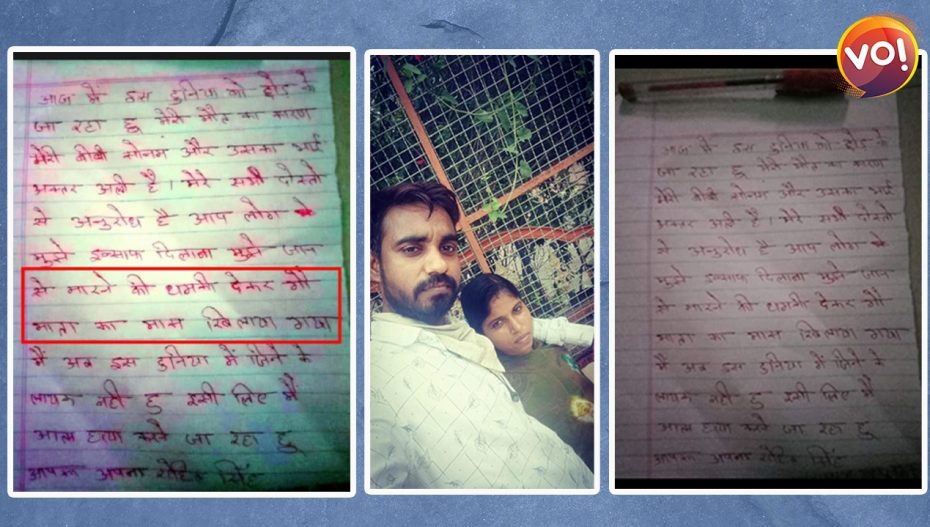 आज मै इस दुनिया को छोड के
जा रहा हू मेरी मौत का कारण
मेरी बीबी सोनम और उसका भाई
अक्तर अली है। मेरे सभी दोस्तो
से अनुरोध है आप लोग
मुझे इन्साफ दिलाना मुझे जान
से मारने की धमकी देकर गौ
माता का मास खिलाया गया
मै अब इस दुनिया में जिने के
लायक नही हु इसी लिए मै
आत्म हत्या करने जा रहा हु
आपका अपना रोहित सिंह
आज मै इस दुनिया को छोड के
जा रहा हू मेरी मौत का कारण
मेरी बीबी सोनम और उसका भाई
अक्तर अली है। मेरे सभी दोस्तो
से अनुरोध है आप लोग
मुझे इन्साफ दिलाना मुझे जान
से मारने की धमकी देकर गौ
माता का मास खिलाया गया
मै अब इस दुनिया में जिने के
लायक नही हु इसी लिए मै
आत्म हत्या करने जा रहा हु
आपका अपना रोहित सिंह
VO!